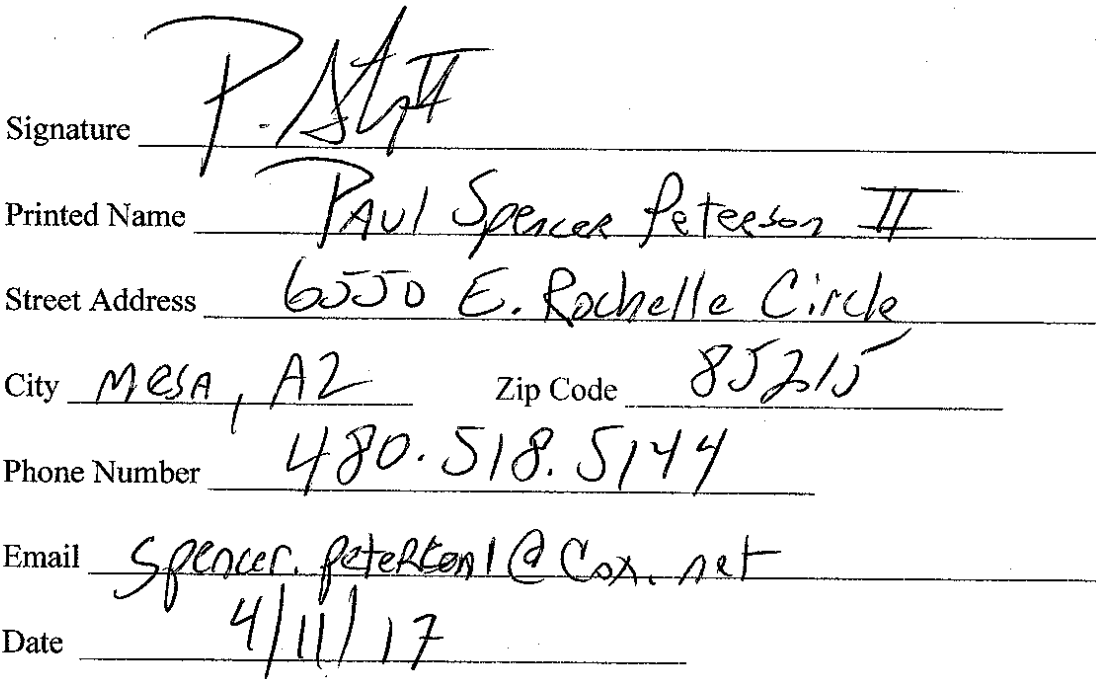 Signature
Printed Name Paul Spencer Peterson II
Street Address 6550 E. Rochelle Circle
City Mesa, AZ Zip Code 85215
Phone Number 480.518.5144
Email Spencer.peterson1@Cox.net
Date 4/11/17